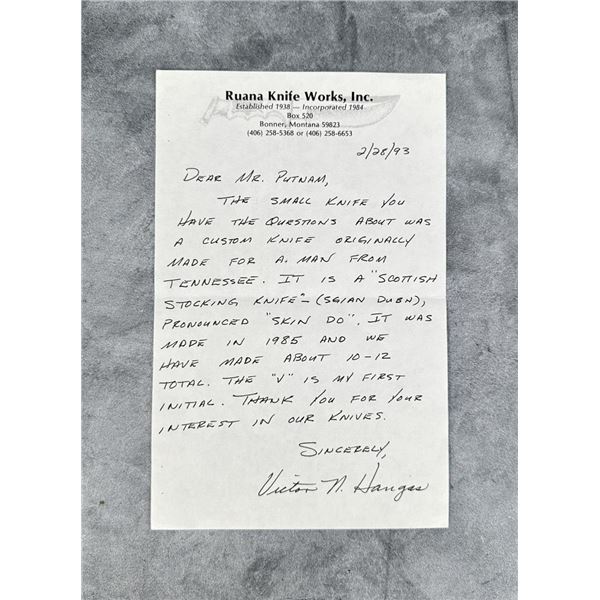 Ruana Knife Works, Inc.
Established 1938 — Incorporated 1984
Box 520
Bonner, Montana 59823
(406) 258-5368 or (406) 258-6653
2/28/93
DEAR MR. PUTNAM,
THE SMALL KNIFE YOU
HAVE THE QUESTIONS ABOUT WAS
A CUSTOM KNIFE ORIGINALLY
MADE FOR A MAN FROM
TENNESSEE. IT IS A "SCOTTISH
STOCKING KNIFE" - (SGIAN DUBN),
PRONOUNCED "SKIN DO". IT WAS
MADE IN 1985 AND WE
HAVE MADE ABOUT 10-12
TOTAL. THE "V" IS MY FIRST
INITIAL. THANK YOU FOR YOUR
INTEREST IN OUR KNIVES.
SINCERELY,
Victor N. Hangas